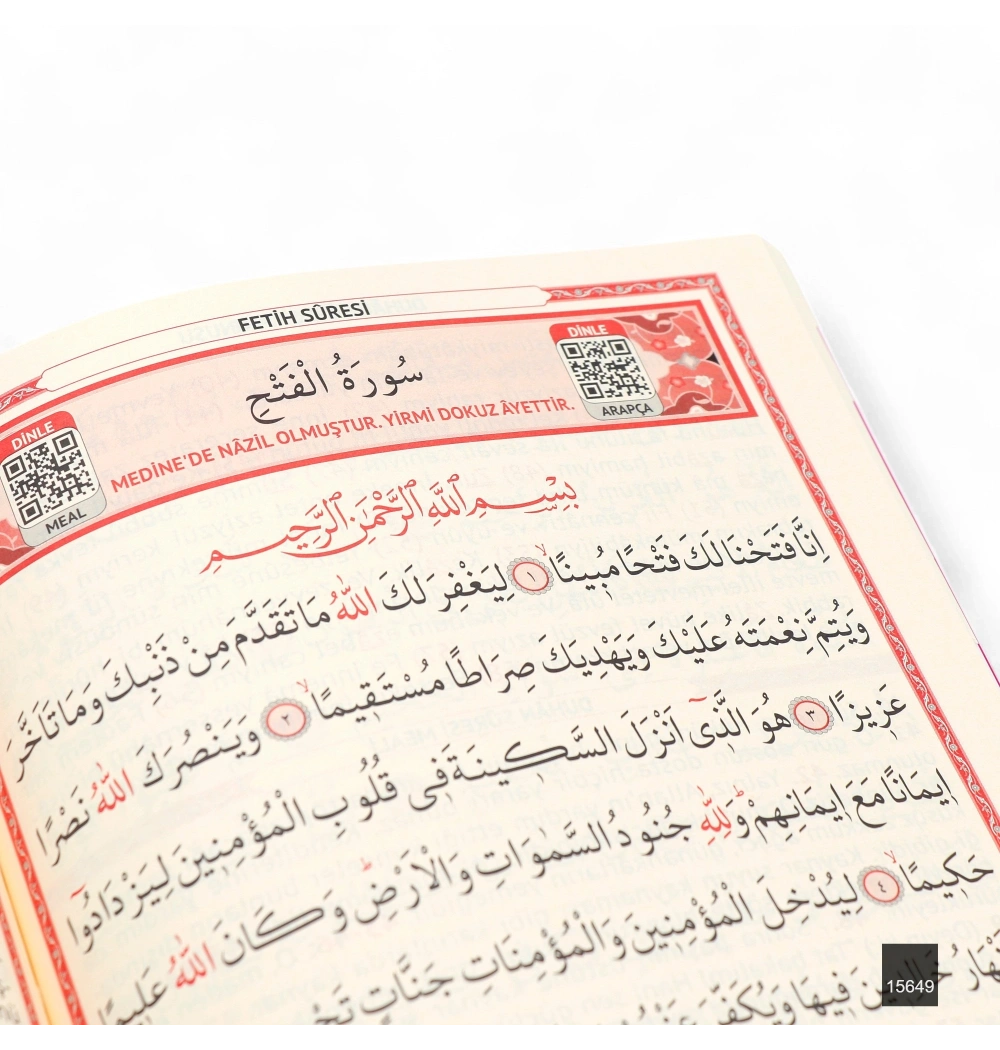 FETİH SÛRESİ
سُورَةُ الْفَتْحِ
DİNLE
ARAPÇA
DİNLE
MEAL
MEDİNE'DE NÂZİL OLMUŞTUR. YİRMİ DOKUZ ÂYETTİR.
بِسْمِ اللَّهِ الرَّحْمَٰنِ الرَّحِيمِ
اِنَّا فَتَحْنَا لَكَ فَتْحًا مُبِينًاۙ ﴿١﴾ لِيَغْفِرَ لَكَ اللّٰهُ مَا تَقَدَّمَ مِنْ ذَنْبِكَ وَمَا تَاَخَّرَ
وَيُتِمَّ نِعْمَتَهُ عَلَيْكَ وَيَهْدِيَكَ صِرَاطًا مُسْتَقِيمًاۙ ﴿٢﴾ وَيَنْصُرَكَ اللّٰهُ نَصْرًا
عَزِيزًا ﴿٣﴾ هُوَ الَّذٓى اَنْزَلَ السَّكِينَةَ فِى قُلُوبِ الْمُؤْمِنِينَ لِيَزْدَادُٓوا
اِيمَانًا مَعَ اِيمَانِهِمْۜ وَلِلّٰهِ جُنُودُ السَّمٰوَاتِ وَالْاَرْضِۜ وَكَانَ اللّٰهُ عَلِيمًا
حَكِيمًاۙ ﴿٤﴾ لِيُدْخِلَ الْمُؤْمِنِينَ وَالْمُؤْمِنَاتِ جَنَّاتٍ
خَالِدِينَ فِيهَا وَيُكَفِّرَ عَنْهُمْ
15649